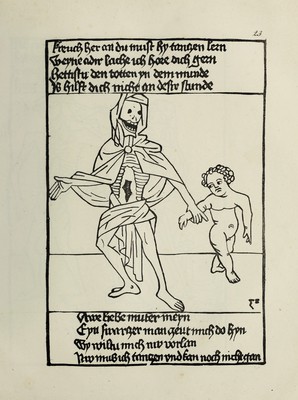 23
Kreuch her an du must hy tantzen lern
Weyne adir lache ich hore dich gern
Hettistu den totten yn dem munde
Is hilft dich nicht an desir stunde
Awe liebe muter meyn
Eyn swarczer man zeut mich do hyn
Wy wiltu mich nw vorlan
Nw mus ich tantzen und kan noch nicht gan